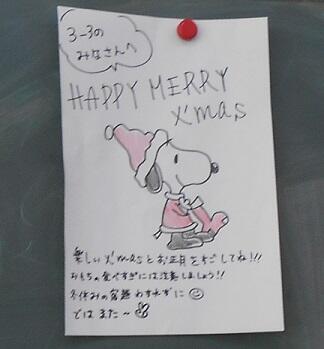 3-3の
みなさんへ
HAPPY MERRY
X'mas
楽しいX'masとお正月をすごしてね!!!
おもちの食べすぎには注意しましょう!!
冬休みの宿題わすれずに
ではまた〜